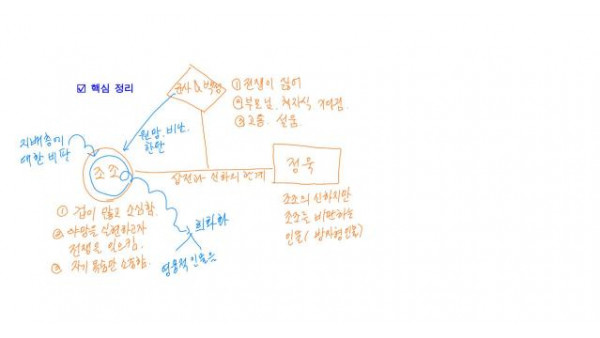 ☑ 핵심 정리
군사 & 백성
① 전쟁이 싫어
② 부모님, 처자식 걱정
③ 고통, 설움
원망, 비난
한탄
지배층에
대한 비판
조조
상전과 신하의 관계
정욱
① 겁이 많고 소심함.
② 야망을 실현하고자
전쟁을 일으킴.
③ 자기 목숨만 소중함.
희화화
영웅적 인물
조조의 신하지만
조조를 비판하는
인물( 방자형 인물)